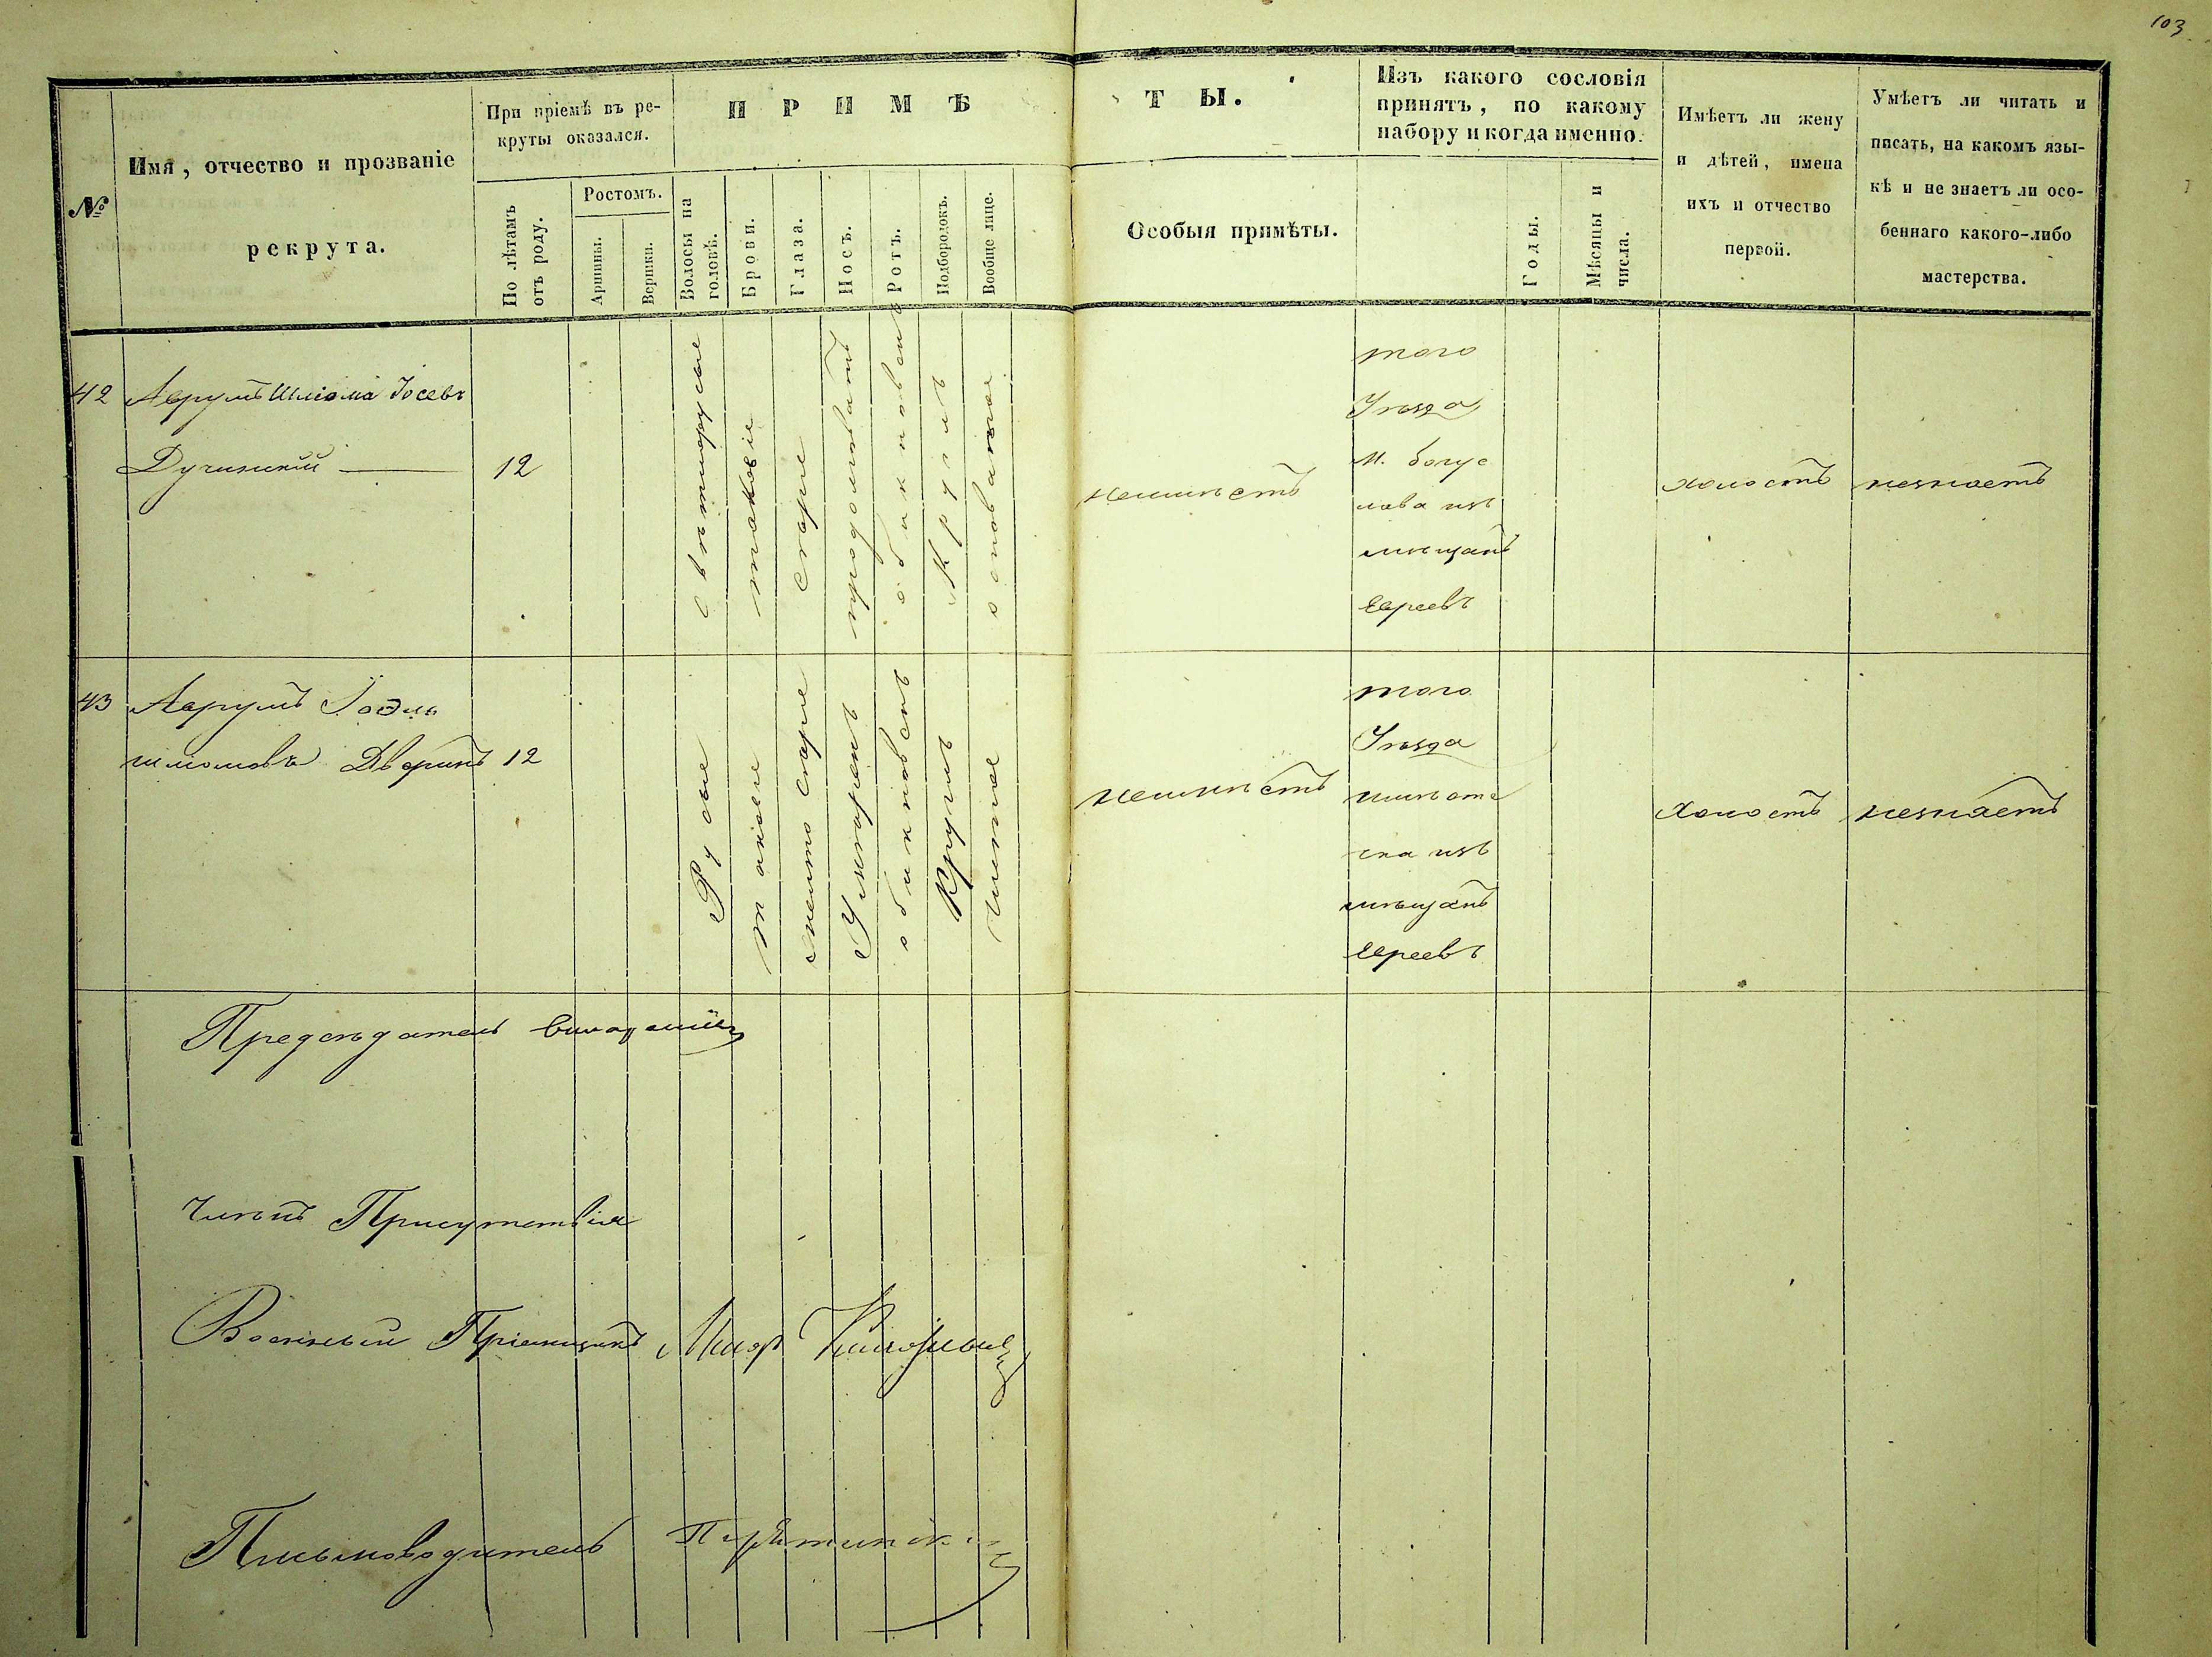 103
№
Имя, отчество и прозваніе
рекрута.
При пріемѣ въ ре-
круты оказался.
По лѣтамъ
отъ роду.
Ростомъ.
Аршины.
Вершки.
ПРИМѢ
ТЫ.
Волосы на
головѣ.
Брови.
Глаза.
Носъ.
Ротъ.
Подбородокъ.
Вообще лице.
Особыя примѣты.
Изъ какого сословія
принятъ, по какому
набору и когда именно.
Годы.
Мѣсяцы и
числа.
Имѣетъ ли жену
и дѣтей, имена
ихъ и отчество
первой.
Умѣетъ ли читать и
писать, на какомъ язы-
кѣ и не знаетъ ли осо-
беннаго какого-либо
мастерства.
42
Аврумъ Шлiома Iосевъ
12
свѣтлорусые
таковые
сѣрые
продолговатъ
обыкновенъ
Круглъ
неимѣетъ
того
Уѣзда
м. богус
лава изъ
мѣщанъ
евреевъ
холостъ
незнаетъ
43
Аврумъ
12
Русые
таковые
желто сѣрые
обыкновенъ
Круглъ
чистое
неимѣетъ
того
Уѣзда
изъ
мѣщанъ
евреевъ
холостъ
незнаетъ
Предсѣдатель
Членъ Присутствія
Военный Пріемщикъ
Письмоводитель